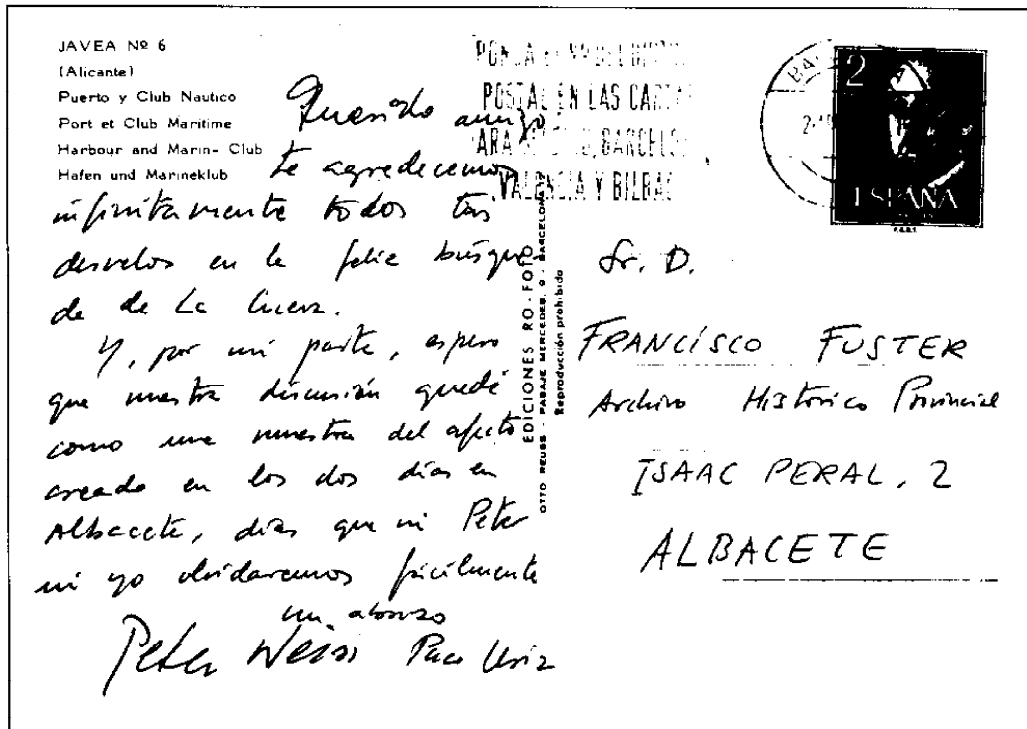 JAVEA Nº 6
(Alicante)
Puerto y Club Nautico
Port et Club Maritime
Harbour and Marin- Club
Hafen und Marineklub
Querido amigo,
te agradecemos
infinitamente todos tus
desvelos en la feliz búsque
da de La Cueva.
Y, por mi parte, espero
que nuestra discusión quede
como una muestra del afecto
creado en los dos días en
Albacete, días que ni Peter
ni yo olvidaremos fácilmente
un abrazo
Peter Weiss Paco Uriz
EDICIONES RO-FOTO
OTTO REUSS - PASAJE MERCEDES, 9 - BARCELONA
Reproducción prohibida
PONGA EL Nº DEL DISTRITO
POSTAL EN LAS CARTAS
PARA BARCELONA,
VALENCIA Y BILBAO
2
ESPAÑA
Sr. D.
FRANCISCO FUSTER
Archivo Histórico Provincial
ISAAC PERAL, 2
ALBACETE